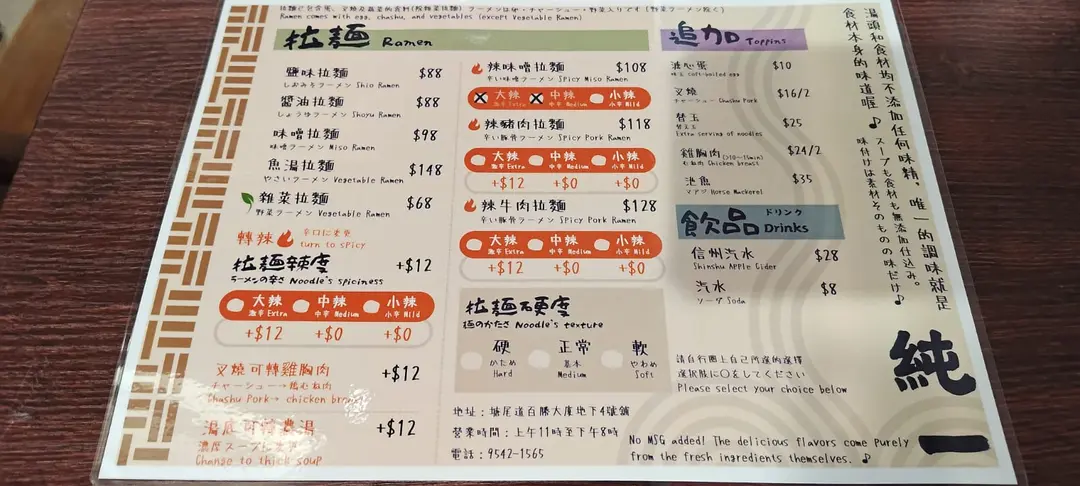 Ramen comes with egg, chashu, and vegetables (except Vegetable Ramen)
拉麵 Ramen
鹽味拉麵 $88
しおみラーメン Shio Ramen
醬油拉麵 $88
しょうゆラーメン Shoyu Ramen
味噌拉麵 $98
味噌ラーメン Miso Ramen
魚湯拉麵 $148
やさいラーメン Vegetable Ramen
雜菜拉麵 $68
野菜ラーメン Vegetable Ramen
轉辣 辛口に変更
turn to spicy
拉麵辣度 +$12
ラーメンの辛さ Noodle's spiciness
大辣 中辣 小辣
激辛 Extra 中辛 Medium 小辛 Mild
+$12 +$0 +$0
叉燒可轉雞胸肉 +$12
チャーシュー→鶏むね肉
Chashu Pork→ chicken breast
湯底可轉濃湯 +$12
濃厚スープに変更
Change to thick soup
辣味噌拉麵 $108
辛い味噌ラーメン Spicy Miso Ramen
大辣 中辣 小辣
激辛 Extra 中辛 Medium 小辛 Mild
辣豬肉拉麵 $118
辛い豚骨ラーメン Spicy Pork Ramen
大辣 中辣 小辣
激辛 Extra 中辛 Medium 小辛 Mild
+$12 +$0 +$0
辣牛肉拉麵 $128
辛い豚骨ラーメン Spicy Pork Ramen
大辣 中辣 小辣
激辛 Extra 中辛 Medium 小辛 Mild
+$12 +$0 +$0
拉麵硬度
麺のかたさ Noodle's texture
硬 正常 軟
かため 基本 やわめ
Hard Medium Soft
地址：塘尾道百勝大廈地下4號舖
營業時間：上午11時至下午8時
電話：9542-1565
追加 Toppins
溏心蛋 $10
味玉 Soft-boiled egg
叉燒 $16/2
チャーシュー Chashu Pork
替玉 $25
替え玉
Extra serving of noodles
雞胸肉 (>10~15min) $24/2
むね肉 Chicken breast
池魚 $35
マアジ Horse Mackerel
飲品 ドリンク Drinks
信州汽水 $28
Shinshu APPle Cider
汽水 $8
ソーダ Soda
請自行圈上自己所選的選擇
選択肢に○をしてください
Please select your choice below
No MSG added! The delicious flavors come purely
from the fresh ingredients themselves. ♪
湯頭和食材均不添加任何味精，唯一的調味就是
食材本身的味道喔♪
スープも食材も無添加仕込み。
味付けは素材そのものの味だけ♪
純一